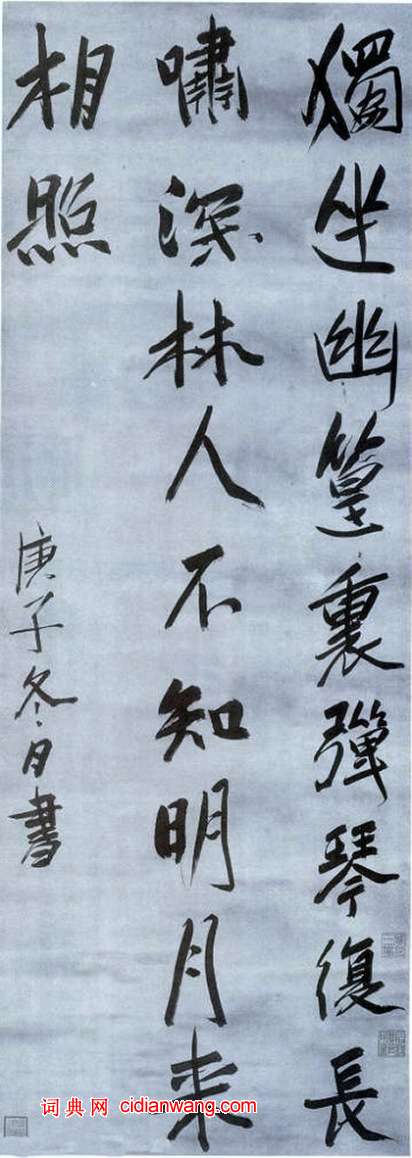 獨坐幽篁裏彈琴復長
嘯深林人不知明月來
相照
庚子冬日書
词典网 cidianwang.com